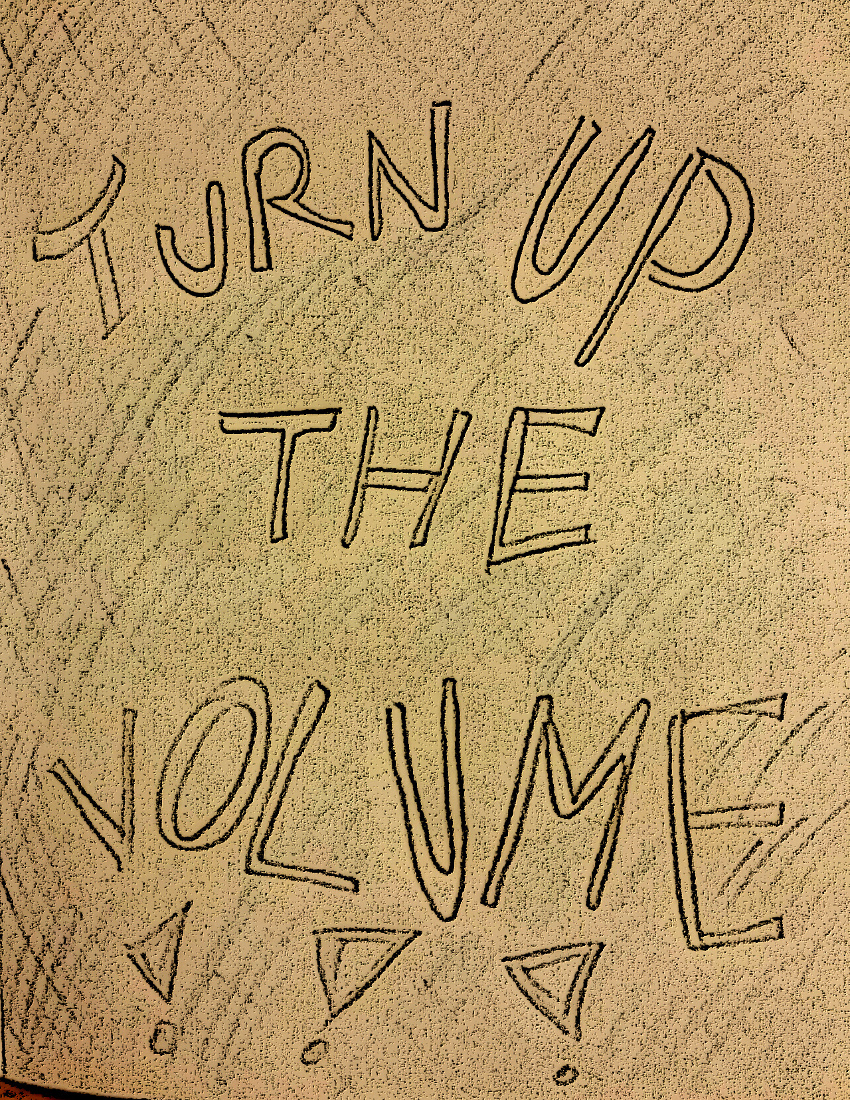 TURN UP
THE
VOLUME
!!!